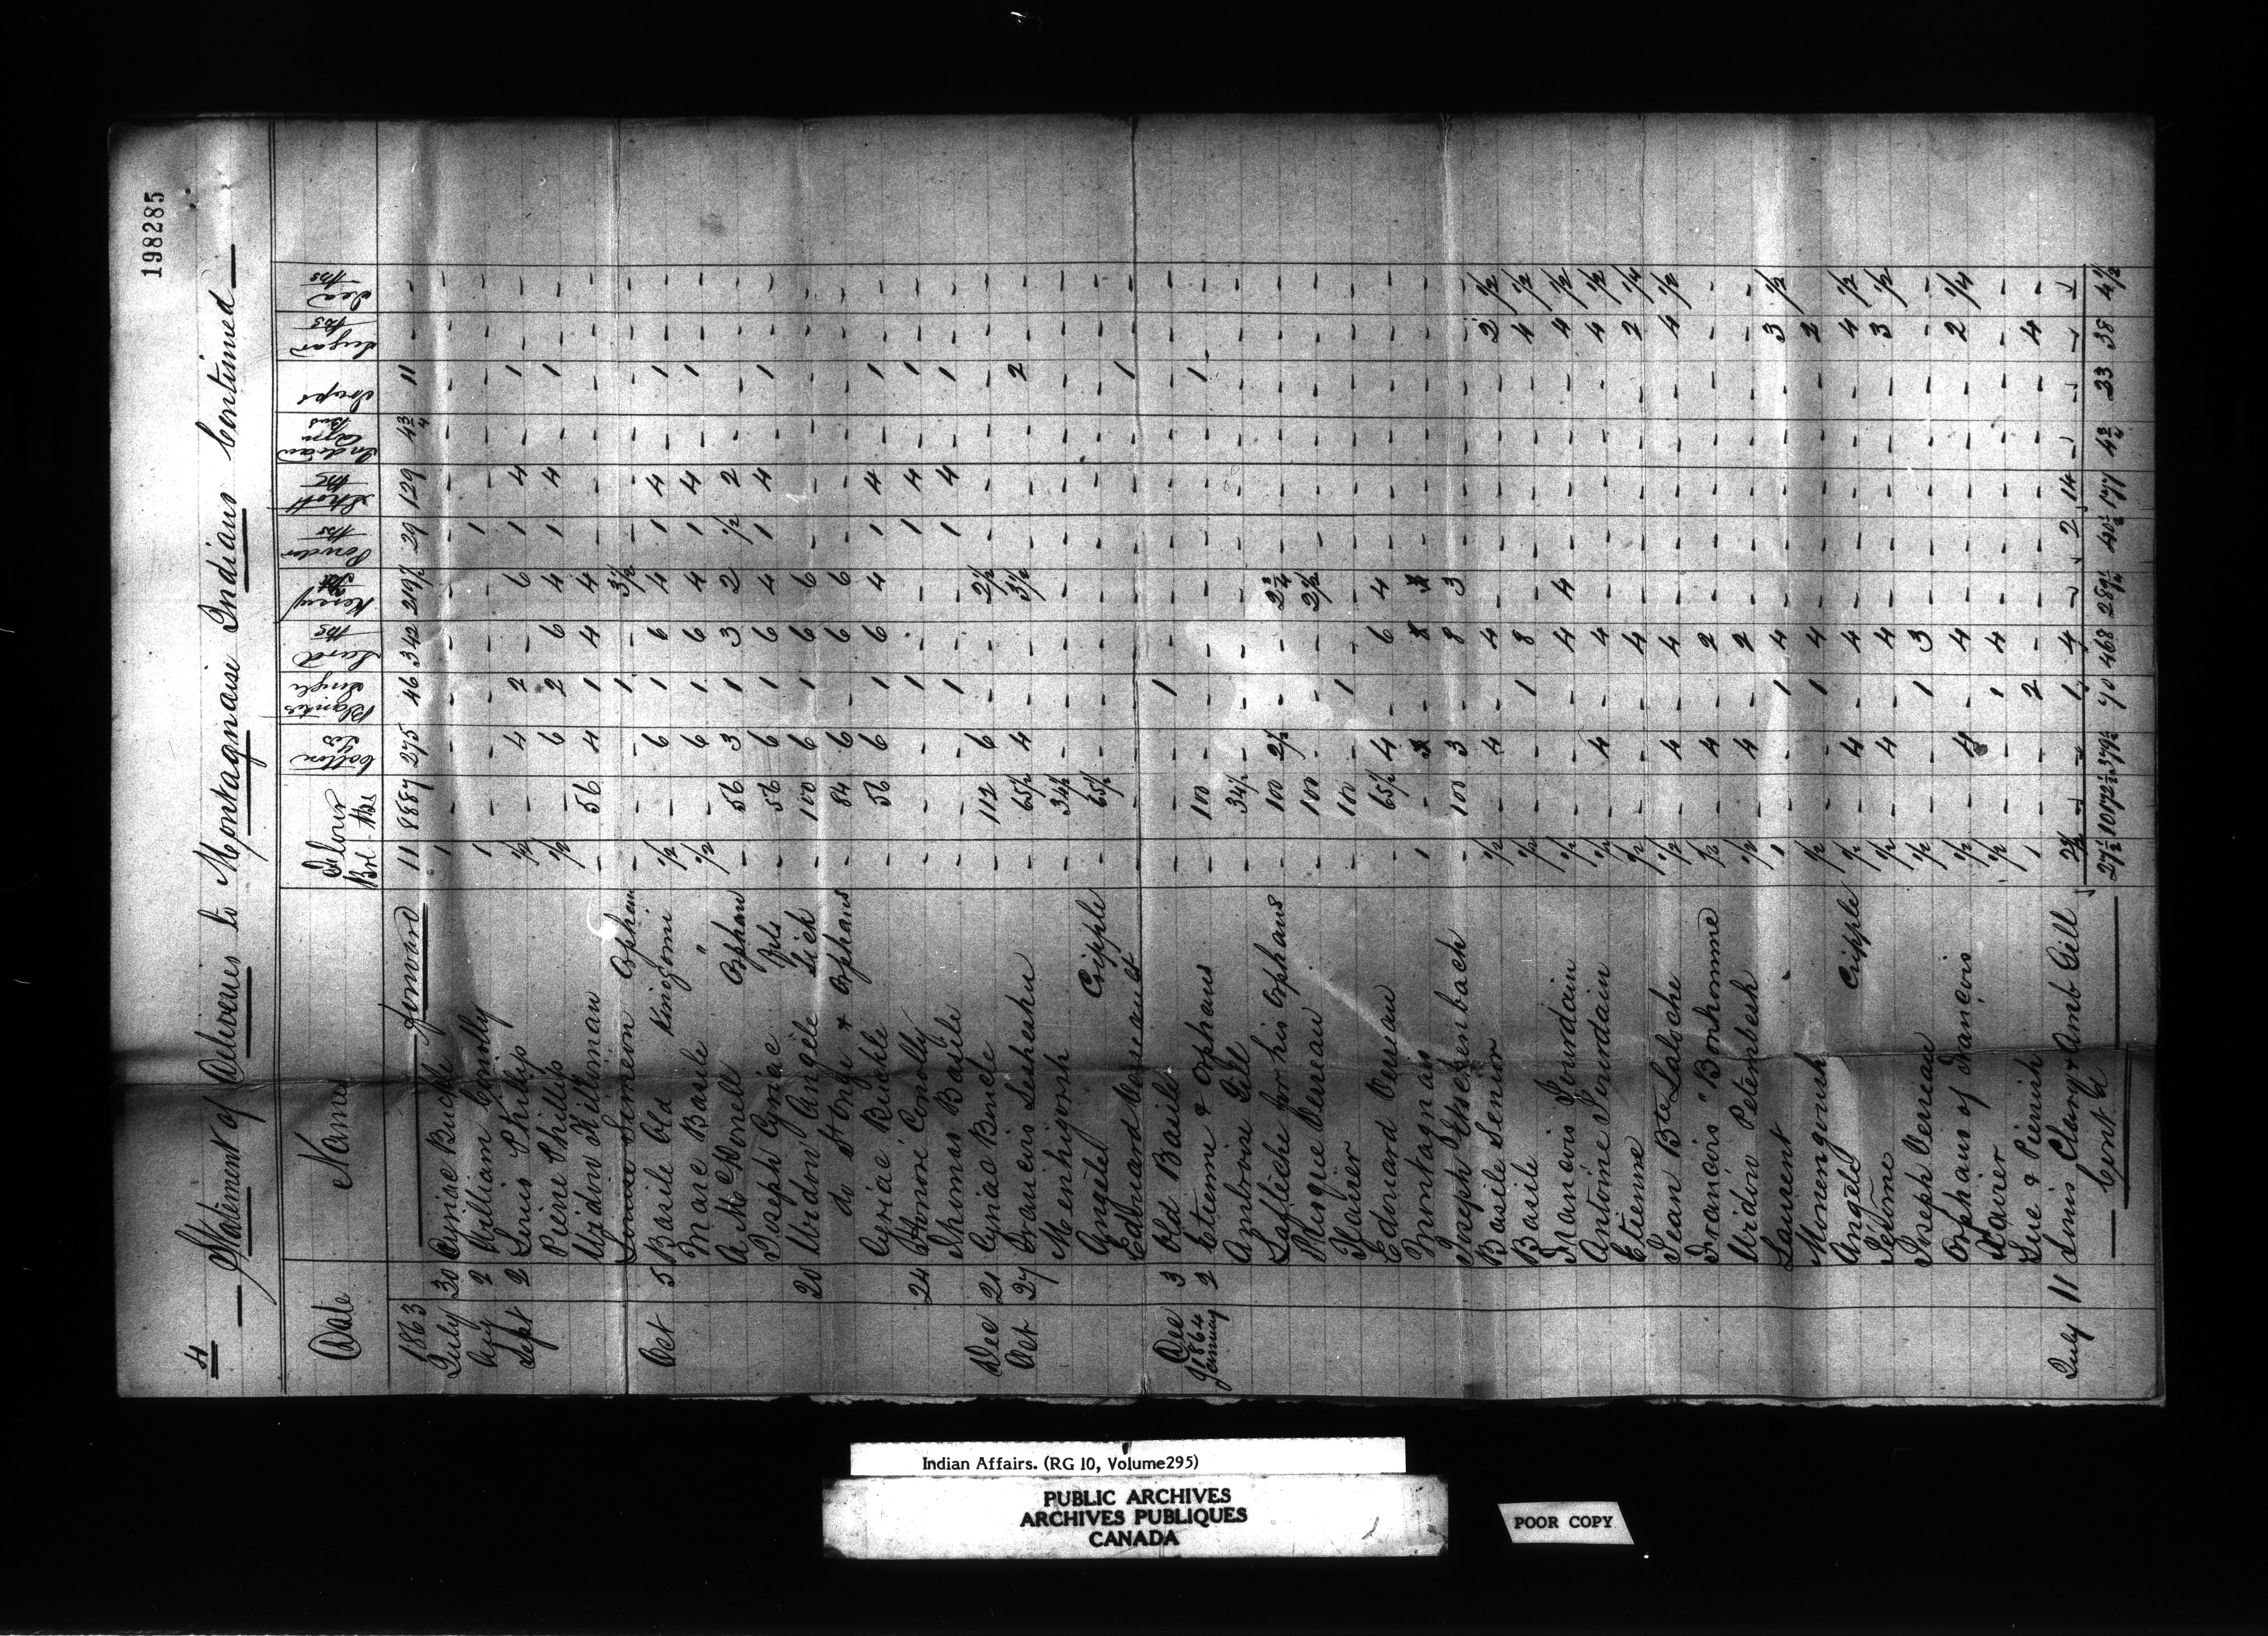 198285
4
Statement of Deliveries to Montagnais Indians Continued
Date Names Flour Brl lbs Cotton Yds Blankets Single Lard lbs Kersey Powder lbs Shott lbs Indian Corn Bus Traps Sugar lbs Tea lbs
1863 Forward 11 8887 275 46 342 219½ 29 129 4¾ 11 - -
July 30 Cyriac Buckle 1 - - - - - - - - - - -
Aug 2 William Conolly 1 - - - - - 1 - - - - -
Sept 2 Louis Phillip ½ - 4 2 - 6 1 4 - 1 - -
Pierre Phillip ½ - 6 2 6 4 1 4 - 1 - -
Widow Kittiman - 56 4 1 4 4 - - - - - -
Louise Simeon Orphan - - - 1 - 3½ - - - - - -
Oct 5 Basile Old Kingzomi ½ - 6 1 6 4 1 4 - 1 - -
Marc Basile " ½ - 6 1 6 4 1 4 - 1 - -
A McDonell Orphan - 56 3 1 3 2 ½ 2 - - - -
Joseph Cyriac Fils - 56 6 1 6 4 1 4 - 1 - -
20 Widow Angèle Sick - 100 6 1 6 6 - - - - - -
do St Onge & Orphans - 84 6 - 6 6 - - - - - -
Cyriac Buckle - 56 6 1 6 4 1 4 - 1 - -
24 Honoré Conolly - - - 1 - - 1 4 - 1 - -
Thomas Basile - - - 1 - - 1 4 - 1 - -
Dec 21 Cyriac Benole - 112 6 - - 2½ - - - - - -
Oct 27 Francois Lesheshu - 65½ 4 - - 3½ - - - 2 - -
Meenhigoosh - 34½ - - - - - - - - - -
Angelet Cripple - 65½ - - - - - - - - - -
Edouard - - - - - - - - - 1 - -
Dec 3 Old Basile - - - 1 - - - - - - - -
1864 January 2 Etienne & Orphans - 100 - - - - - - - 1 - -
Ambroise Gill - 34½ - - - - - - - - - -
Lafleche for his Orphans - 100 2½ - - 2¾ - - - - - -
Misque Verreau - 100 - - - 2½ - - - - - -
Xavier - 100 - 1 - - - - - - - -
Edouard Verreau - 65½ 4 - 6 4 - - - - - -
Montagnais 1 - - - 8 - - - - - -
Joseph - 100 3 - 8 3 - - - - - -
Basile Senior ½ - 4 - 4 - - - - - 2 ½
Basile ½ - - 1 8 - - - - - 4 ½
Francois Jourdain ½ - - - 4 4 - - - - 4 ½
Antoine Jourdain ½ - 4 - 4 - - - - - 4 ½
Etienne ½ - - - 4 - - - - - 2 ¼
Jean Bte Labiche ½ - 4 - 4 - - - - - 4 ½
Francois "Bonhomme ½ - 4 - 2 - - - - - - -
Widow Petenbesh ½ - 4 - 2 - - - - - - -
Laurent 1 - - 1 4 - - - - - 3 ½
Monengoush ½ - - 1 4 - - - - - 2 -
Angele Cripple ½ - 4 - 4 - - - - - 4 ½
Jerome ½ - 4 - 4 - - - - - 3 ½
Joseph Verreau ½ - - 1 3 - - - - - - -
Orphans of Francois ½ - 4 - 4 - - - - - 2 ¼
Xavier ½ - - 1 4 - - - - - - -
Sue & Pierrish 1 - - 2 - - - - - - 4 -
July 11 Louis Clary & Amb Gill 2½ - - 1 4 - 2 14 - - - -
Cont'd 27½ 10172½ 379½ 70 468 289¼ 40½ 177 4¾ 23 38 4½
Indian Affairs. (RG 10, Volume 295)
PUBLIC ARCHIVES
ARCHIVES PUBLIQUES
CANADA
POOR COPY